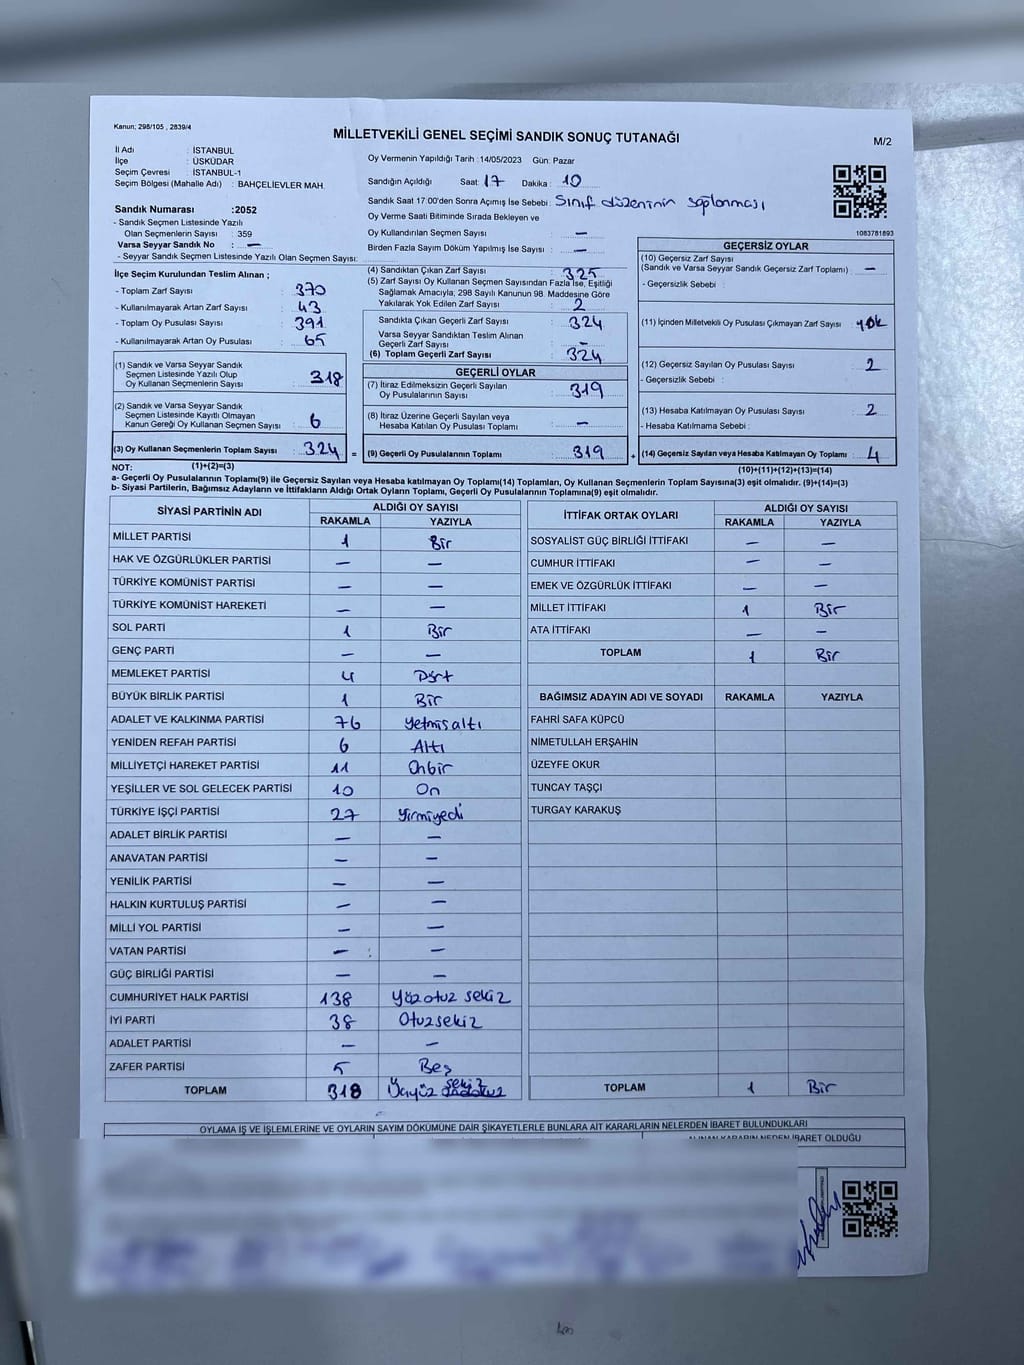 Kanun; 298/105 , 2839/4
MİLLETVEKİLİ GENEL SEÇİMİ SANDIK SONUÇ TUTANAĞI
M/2
İl Adı : İSTANBUL
İlçe : ÜSKÜDAR
Seçim Çevresi : İSTANBUL-1
Seçim Bölgesi (Mahalle Adı) : BAHÇELİEVLER MAH.
Oy Vermenin Yapıldığı Tarih : 14/05/2023 Gün: Pazar
Sandığın Açıldığı Saat: 17 Dakika : 10
Sandık Saat 17.00'den Sonra Açımış İse Sebebi : Sınıf düzeninin saplanması
Oy Verme Saati Bitiminde Sırada Bekleyen ve
Oy Kullandırılan Seçmen Sayısı : —
Birden Fazla Sayım Döküm Yapılmış İse Sayısı : —
1083781893
Sandık Numarası :2052
- Sandık Seçmen Listesinde Yazılı
Olan Seçmenlerin Sayısı : 359
Varsa Seyyar Sandık No : —
- Seyyar Sandık Seçmen Listesinde Yazılı Olan Seçmen Sayısı:
İlçe Seçim Kurulundan Teslim Alınan ;
- Toplam Zarf Sayısı : 370
- Kullanılmayarak Artan Zarf Sayısı : 43
- Toplam Oy Pusulası Sayısı : 391
- Kullanılmayarak Artan Oy Pusulası : 65
(1) Sandık ve Varsa Seyyar Sandık
Seçmen Listesinde Yazılı Olup
Oy Kullanan Seçmenlerin Sayısı : 318
(2) Sandık ve Varsa Seyyar Sandık
Seçmen Listesinde Kayıtlı Olmayan
Kanun Gereği Oy Kullanan Seçmen Sayısı : 6
(3) Oy Kullanan Seçmenlerin Toplam Sayısı : 324 =
(1)+(2)=(3)
(4) Sandıktan Çıkan Zarf Sayısı : 325
(5) Zarf Sayısı Oy Kullanan Seçmen Sayısından Fazla İse, Eşitliği
Sağlamak Amacıyla, 298 Sayılı Kanunun 98. Maddesine Göre
Yakılarak Yok Edilen Zarf Sayısı : 2
Sandıkta Çıkan Geçerli Zarf Sayısı : 324
Varsa Seyyar Sandıktan Teslim Alınan
Geçerli Zarf Sayısı : —
(6) Toplam Geçerli Zarf Sayısı : 324
GEÇERLİ OYLAR
(7) İtiraz Edilmeksizin Geçerli Sayılan
Oy Pusulalarının Sayısı : 319
(8) İtiraz Üzerine Geçerli Sayılan veya
Hesaba Katılan Oy Pusulası Toplamı : —
(9) Geçerli Oy Pusulalarının Toplamı : 319 +
GEÇERSİZ OYLAR
(10) Geçersiz Zarf Sayısı
(Sandık ve Varsa Seyyar Sandık Geçersiz Zarf Toplamı) : —
- Geçersizlik Sebebi :
(11) İçinden Milletvekili Oy Pusulası Çıkmayan Zarf Sayısı : yok
(12) Geçersiz Sayılan Oy Pusulası Sayısı : 2
- Geçersizlik Sebebi :
(13) Hesaba Katılmayan Oy Pusulası Sayısı : 2
- Hesaba Katılmama Sebebi :
(14) Geçersiz Sayılan veya Hesaba Katılmayan Oy Toplamı : 4
(10)+(11)+(12)+(13)=(14)
NOT:
a- Geçerli Oy Pusulalarının Toplamı(9) ile Geçersiz Sayılan veya Hesaba katılmayan Oy Toplamı(14) Toplamları, Oy Kullanan Seçmenlerin Toplam Sayısına(3) eşit olmalıdır. (9)+(14)=(3)
b- Siyasi Partilerin, Bağımsız Adayların ve İttifakların Aldığı Ortak Oyların Toplamı, Geçerli Oy Pusulalarının Toplamına(9) eşit olmalıdır.
SİYASİ PARTİNİN ADI ALDIĞI OY SAYISI
RAKAMLA YAZIYLA
MİLLET PARTİSİ 1 Bir
HAK VE ÖZGÜRLÜKLER PARTİSİ — —
TÜRKİYE KOMÜNİST PARTİSİ — —
TÜRKİYE KOMÜNİST HAREKETİ — —
SOL PARTİ 1 Bir
GENÇ PARTİ — —
MEMLEKET PARTİSİ 4 Dört
BÜYÜK BİRLİK PARTİSİ 1 Bir
ADALET VE KALKINMA PARTİSİ 76 Yetmişaltı
YENİDEN REFAH PARTİSİ 6 Altı
MİLLİYETÇİ HAREKET PARTİSİ 11 Onbir
YEŞİLLER VE SOL GELECEK PARTİSİ 10 On
TÜRKİYE İŞÇİ PARTİSİ 27 Yirmiyedi
ADALET BİRLİK PARTİSİ — —
ANAVATAN PARTİSİ — —
YENİLİK PARTİSİ — —
HALKIN KURTULUŞ PARTİSİ — —
MİLLİ YOL PARTİSİ — —
VATAN PARTİSİ — —
GÜÇ BİRLİĞİ PARTİSİ — —
CUMHURİYET HALK PARTİSİ 138 Yüzotuz sekiz
İYİ PARTİ 38 Otuzsekiz
ADALET PARTİSİ — —
ZAFER PARTİSİ 5 Beş
TOPLAM 318 Üçyüz sekiz
İTTİFAK ORTAK OYLARI ALDIĞI OY SAYISI
RAKAMLA YAZIYLA
SOSYALİST GÜÇ BİRLİĞİ İTTİFAKI — —
CUMHUR İTTİFAKI — —
EMEK VE ÖZGÜRLÜK İTTİFAKI — —
MİLLET İTTİFAKI 1 Bir
ATA İTTİFAKI — —
TOPLAM 1 Bir
BAĞIMSIZ ADAYIN ADI VE SOYADI RAKAMLA YAZIYLA
FAHRİ SAFA KÜPCÜ
NİMETULLAH ERŞAHİN
ÜZEYFE OKUR
TUNCAY TAŞÇI
TURGAY KARAKUŞ
TOPLAM 1 Bir
OYLAMA İŞ VE İŞLEMLERİNE VE OYLARIN SAYIM DÖKÜMÜNE DAİR ŞİKAYETLERLE BUNLARA AİT KARARLARIN NELERDEN İBARET BULUNDUKLARI
ALINAN KARARIN NEDEN İBARET OLDUĞU